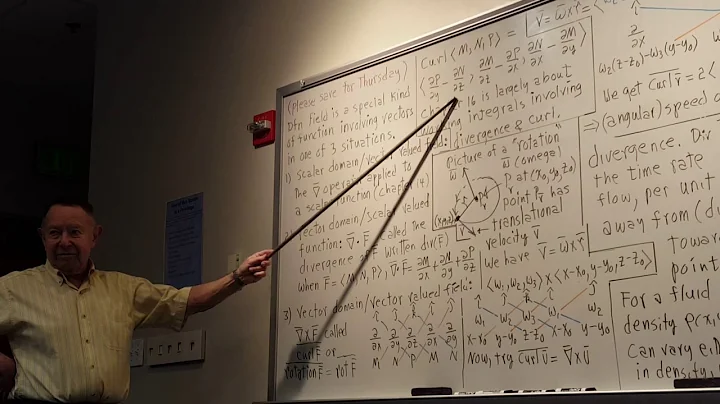 (please save for Thursday)
Dfn Field is a special kind
of function involving vectors
in one of 3 situations.
1) Scaler domain/vector valued field:
the ∇ operator applied to
a scaler function (chapter 14)
vector domain/scalar valued
function: ∇·F called the
divergence of F written div(F)
when F = <M, N, P>, ∇·F = ∂M/∂x + ∂N/∂y + ∂P/∂z
3) Vector domain/vector valued field:
∇×F called
curl F or
rotation F = rot F
î ĵ k̂ î ĵ
∂/∂x ∂/∂y ∂/∂z ∂/∂x ∂/∂y
M N P M N
Curl <M, N, P> =
<∂P/∂y - ∂N/∂z, ∂M/∂z - ∂P/∂x, ∂N/∂x - ∂M/∂y>
16 is largely about
integrals involving
divergence & curl.
Picture of a "rotation"
ω (omega)
P at (x₀, y₀, z₀)
point P has
translational
velocity v
we have v = ω×r
<ω₁, ω₂, ω₃> × <x-x₀, y-y₀, z-z₀>
ω₁ ω₂ ω₃ ω₁ ω₂
x-x₀ y-y₀ z-z₀ x-x₀ y-y₀
Now, try curl v = ∇×v
v = ω×r =
∂/∂x
ω₂(z-z₀)-ω₃(y-y₀)
We get curl v = 2<
⇒ (angular) speed o
divergence. Div
the time rate
flow, per unit
away from (di
towar
point
For a fluid
density ρ(x,
Can vary e.
in density,